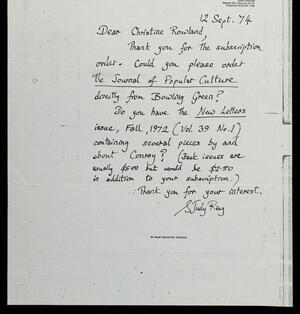 12 Sept. 74
Dear Christine Rowland,
Thank you for the subscription
order. Could you please order
The Journal of Popular Culture
directly from Bowling Green?
Do you have the New Letters
issue, Fall, 1972 (Vol. 39 No. 1)
containing several pieces by and
about Conroy? (Back issues are
usually $5.00 but would be $2.50
in addition to your subscription.)
Thank you for your interest.
Judy Ray
An Equal Opportunity Institution